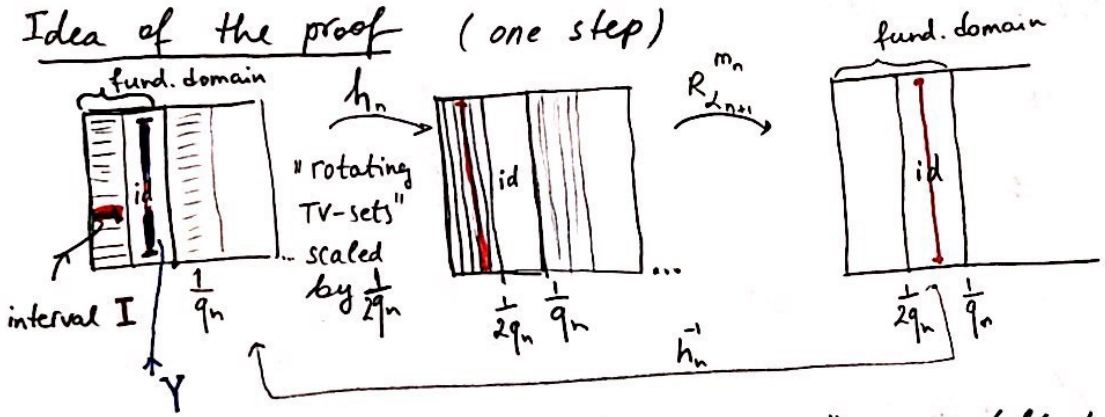 Idea of the proof (one step)
fund. domain
id
interval I
1/qₙ
Y
hₙ
"rotating
TV-sets"
scaled
by 1/2qₙ
id
1/2qₙ
1/qₙ
R_{αₙ₊₁}^{mₙ}
fund. domain
id
1/2qₙ
1/qₙ
hₙ⁻¹